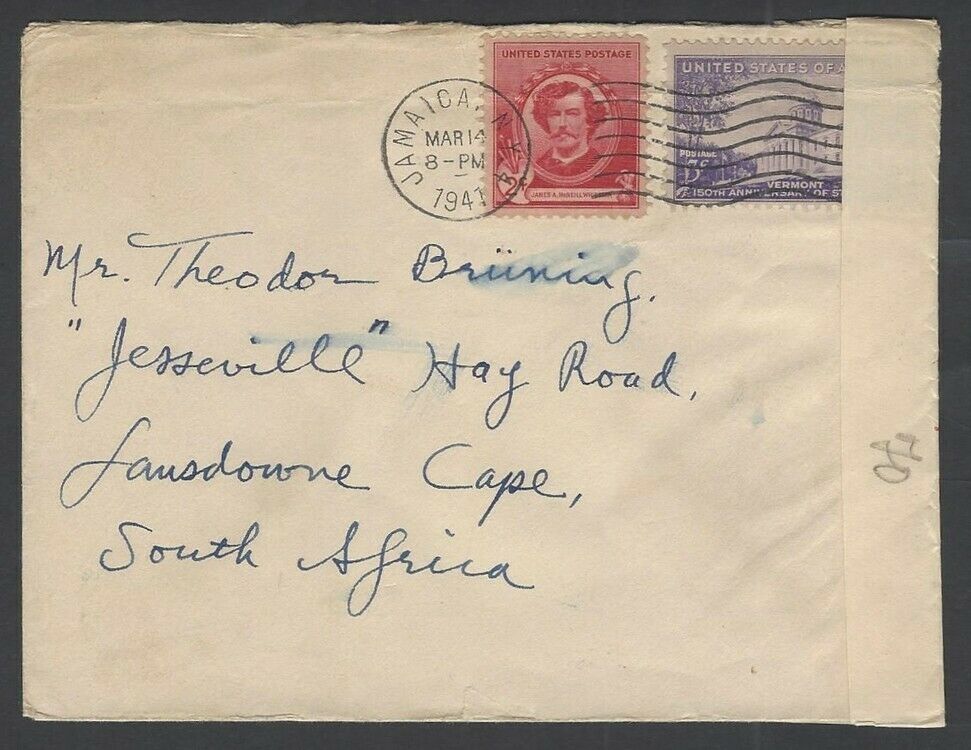 UNITED STATES POSTAGE
UNITED STATES OF A
JAMAICA, N.Y.
MAR 14
8-PM
1941
2¢
JAMES A. McNEILL WHISTLER
POSTAGE
3¢
VERMONT
150TH ANNIVERSARY OF ST
Mr. Theodor Brüning,
"Jesseville" Hay Road,
Lansdowne Cape,
South Africa